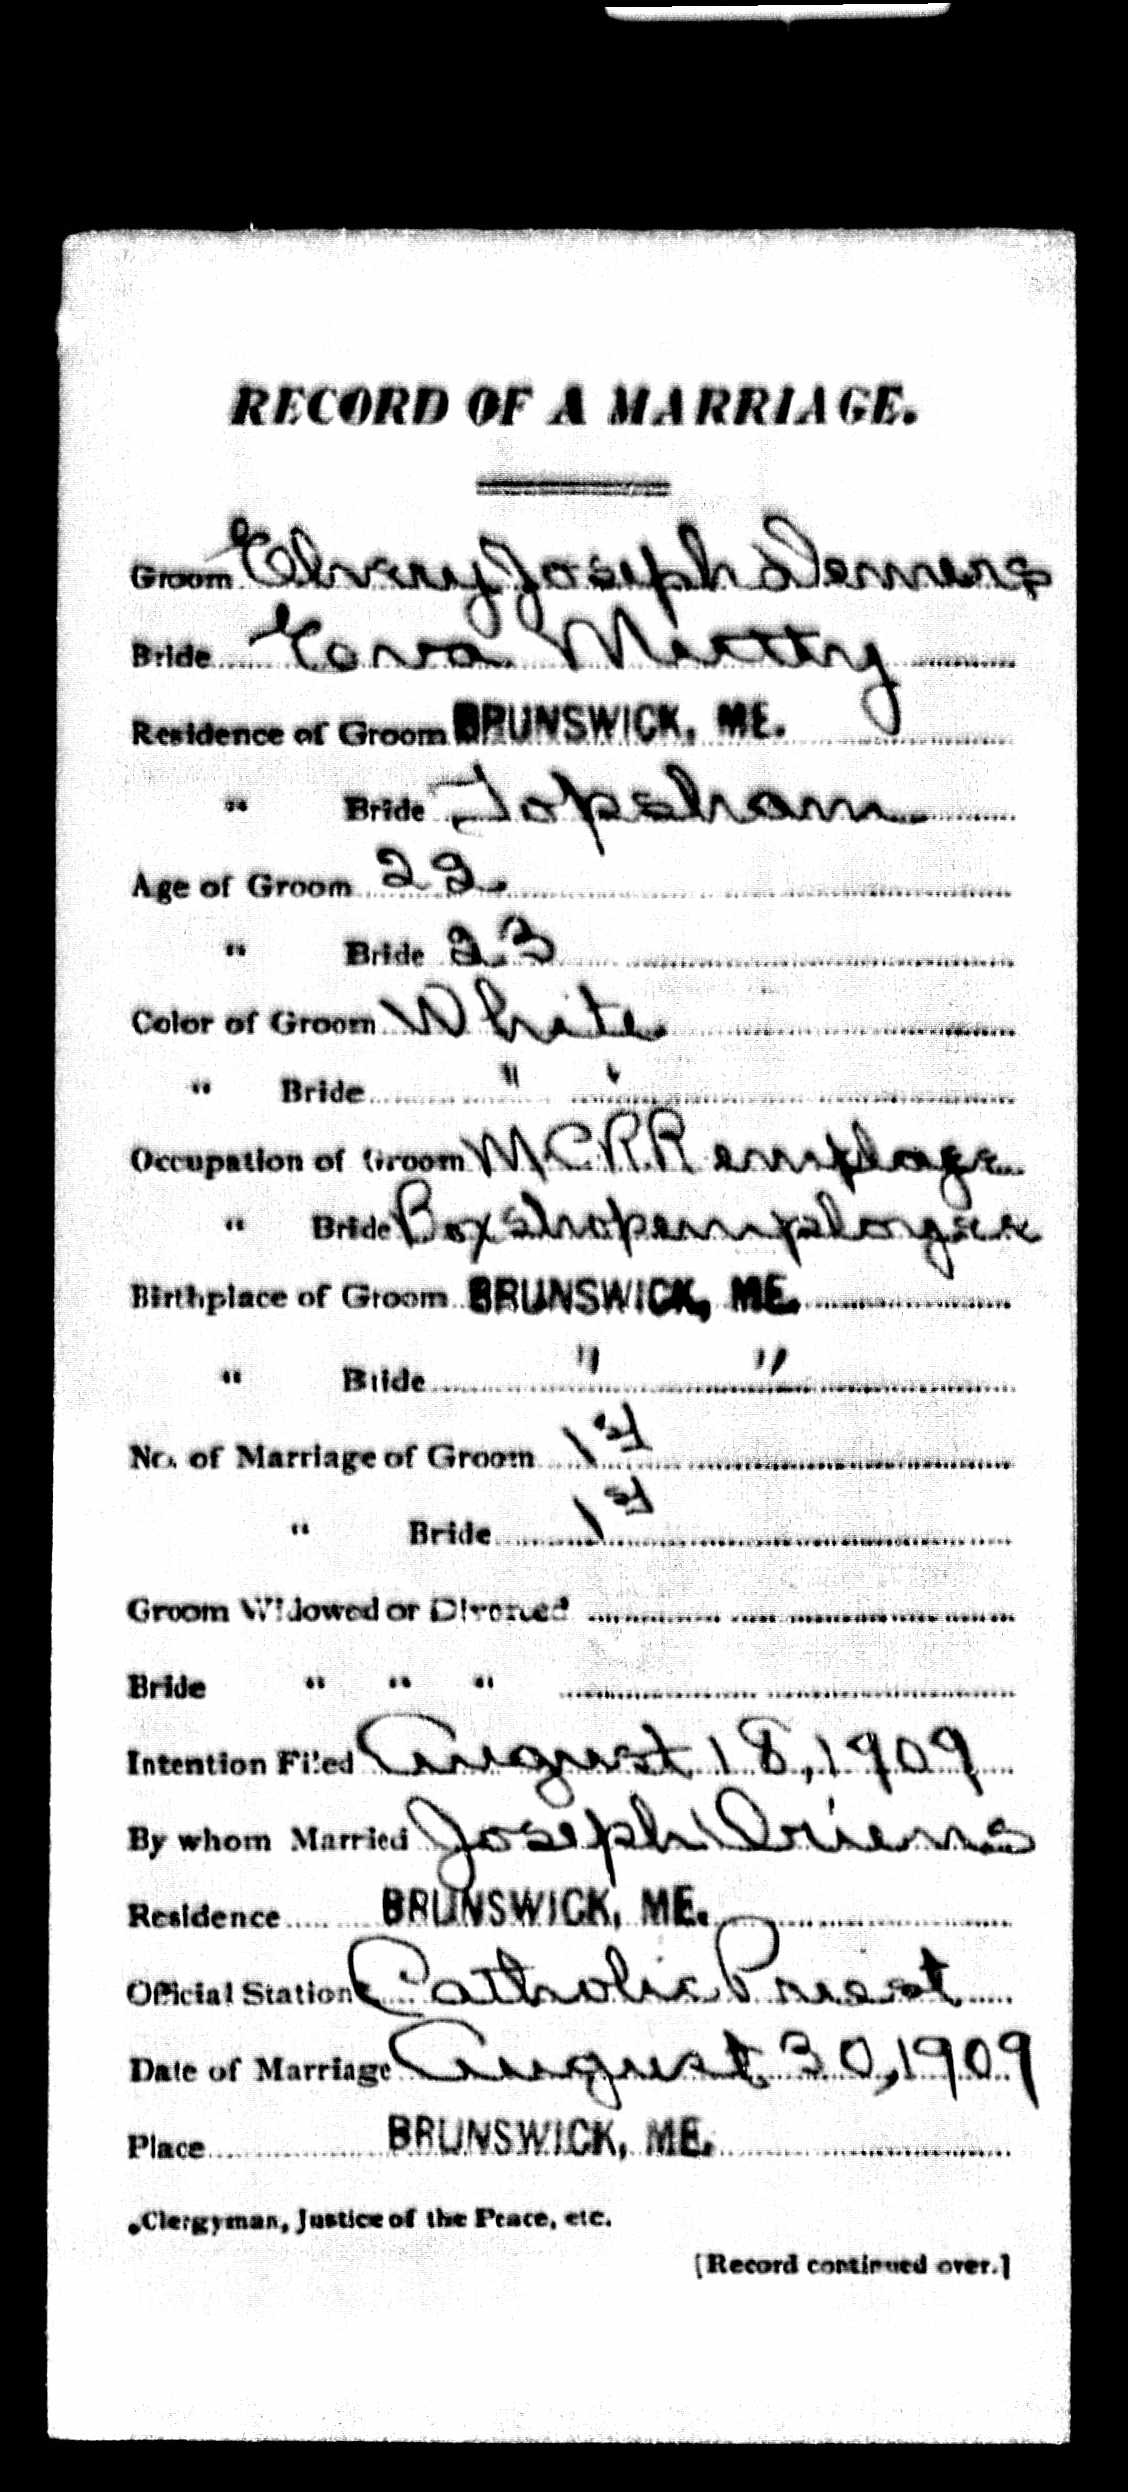 RECORD OF A MARRIAGE.
Groom Joseph
Bride Eova
Residence of Groom BRUNSWICK, ME.
" Bride Topsham
Age of Groom 22
" Bride 23
Color of Groom White
" Bride " "
Occupation of Groom M C R R employe
" Bride Boxshop employee
Birthplace of Groom BRUNSWICK, ME.
" Bride " "
No. of Marriage of Groom 1st
" Bride 1st
Groom Widowed or Divorced
Bride " " "
Intention Filed August 18, 1909
By whom Married Joseph
Residence BRUNSWICK, ME.
Official Station Catholic Priest
Date of Marriage August 30, 1909
Place BRUNSWICK, ME.
*Clergyman, Justice of the Peace, etc.
[Record continued over.]